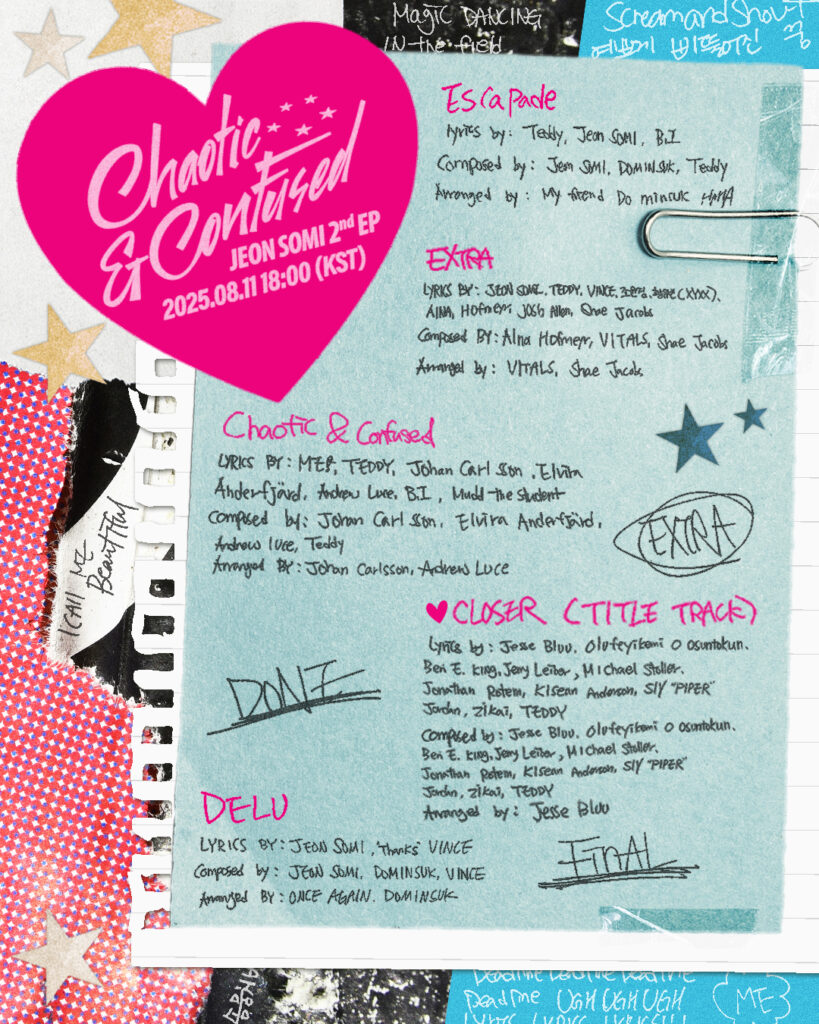 Magic DANCING
IN the field
Scream and Shout
예쁘게 삐뚤어진
Chaotic
& Confused
JEON SOMI 2nd EP
2025.08.11 18:00 (KST)
Escapade
Lyrics by: Teddy, Jeon SOMI, B.I
Composed by: Jeon SOMI, DOMINSUK, Teddy
Arranged by: My friend Do minsuk HAHA
EXTRA
LYRICS BY: JEON SOMI, TEDDY, VINCE, (XYXX),
AINA, Hofmeyr Josh Allen, Shae Jacobs
Composed BY: Aina Hofmeyr, VITALS, Shae Jacobs
Arranged by: VITALS, Shae Jacobs
Chaotic & Confused
LYRICS BY: TEDDY, Johan Carlsson, Elvira
Anderfjärd, Andrew Luce, B.I, Mudd the student
Composed by: Johan Carlsson, Elvira Anderfjärd,
Andrew luce, Teddy
Arranged BY: Johan Carlsson, Andrew Luce
EXTRA
I CAll ME
Beautiful
♥CLOSER (TITLE TRACK)
Lyrics by: Jesse Bluu, Olufeyikemi O Osuntokun.
Ben E. King, Jerry Leiber, Michael Stoller.
Jonathan Rotem, Kisean Anderson, Sly "PIPER"
Jordan, Zikai, TEDDY
Composed by: Jesse Bluu, Olufeyikemi O Osuntokun.
Ben E. King, Jerry Leiber, Michael Stoller.
Jonathan Rotem, Kisean Anderson, Sly "PIPER"
Jordan, Zikai, TEDDY
Arranged by: Jesse Bluu
DONE
DELU
LYRICS BY: JEON SOMI, "Thanks" VINCE
Composed by: JEON SOMI, DOMINSUK, VINCE
Arranged BY: ONCE AGAIN. DOMINSUK
FINAL
Deadline Deadline Deadline
Deadline UGH UGH UGH
LYRICS LYRICS LYRICS
ME